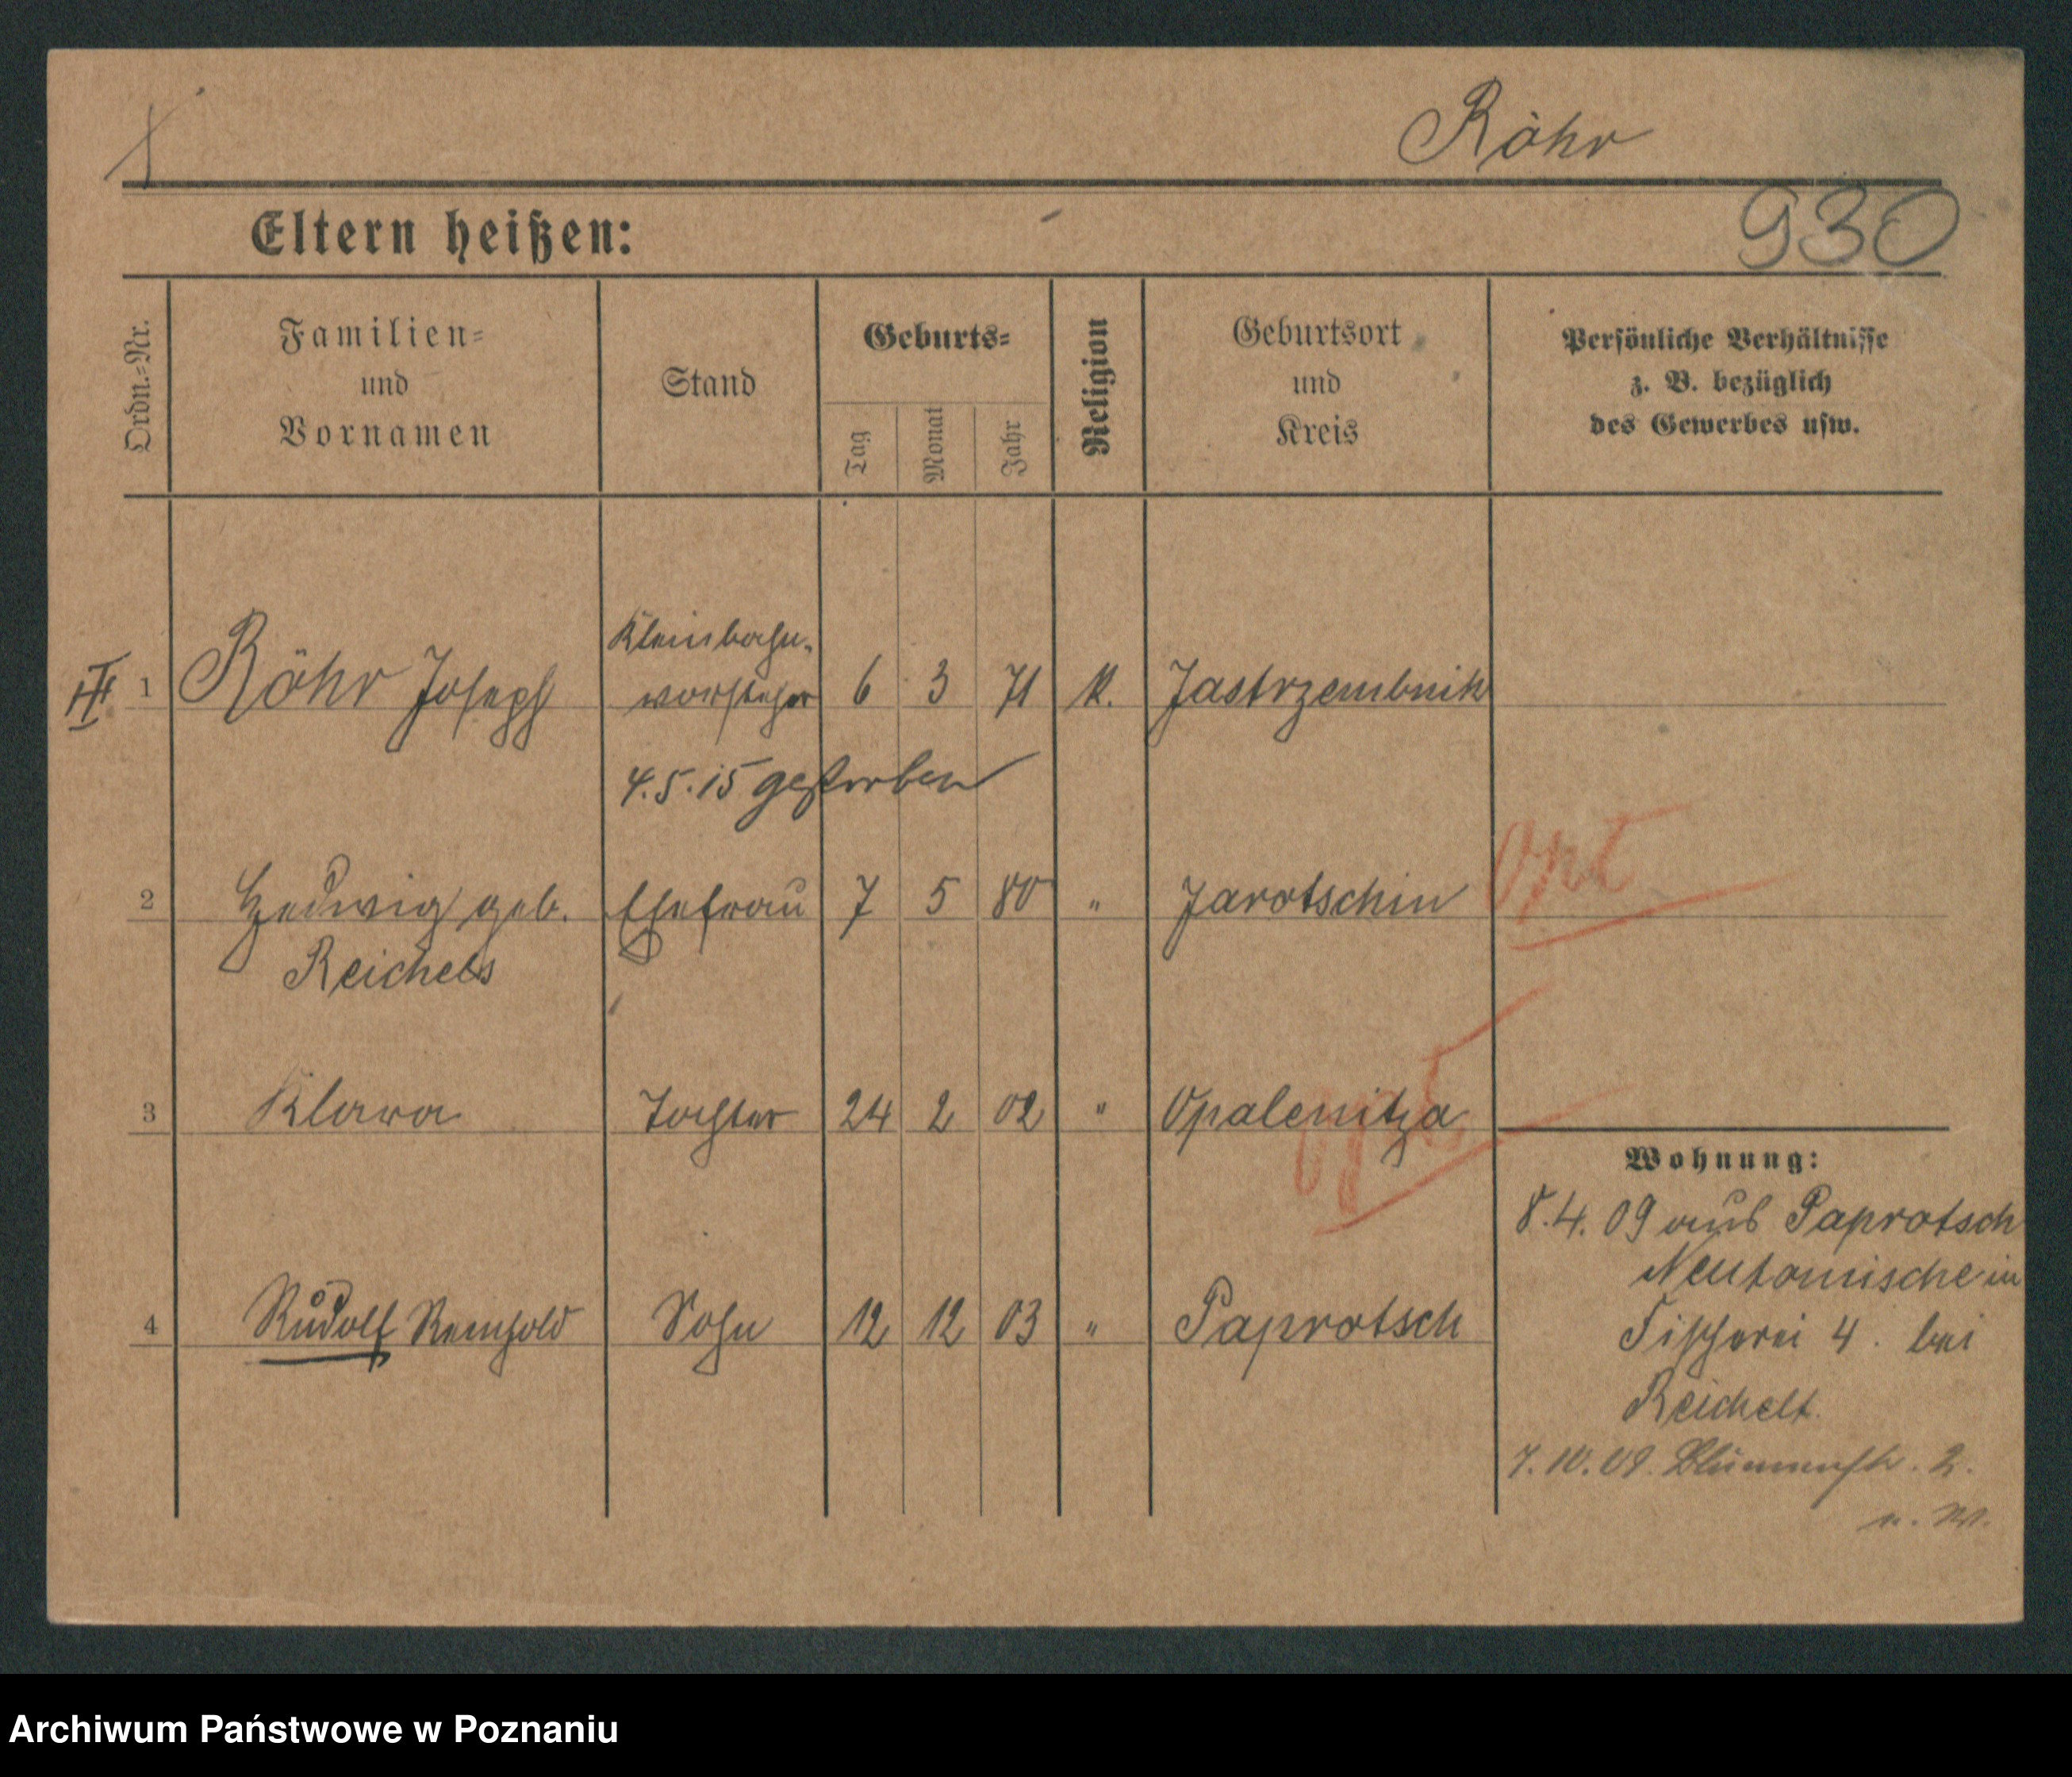 Röhr
930
Eltern heißen:
Ordn.=Nr.
Familien=
und
Vornamen
Stand
Geburts=
Tag
Monat
Jahr
Religion
Geburtsort
und
Kreis
Persönliche Verhältnisse
z. B. bezüglich
des Gewerbes usw.
III 1 Röhr Joseph Kleinbahn-
vorsteher 6 3 71 K. Jastrzembnik
4.5.15 gestorben
2 Hedwig geb. Ehefrau 7 5 80 " Jarotschin opt
Reichels
3 Klara Tochter 24 2 02 " Opalenitza
opt
4 Rudolf Reinhold Sohn 12 12 03 " Paprotsch
Wohnung:
8.4.09 aus Paprotsch
Neutomischein
Fischerei 4. bei
Reichelt.
7.10.09. Blumenstr. 2.
Archiwum Państwowe w Poznaniu